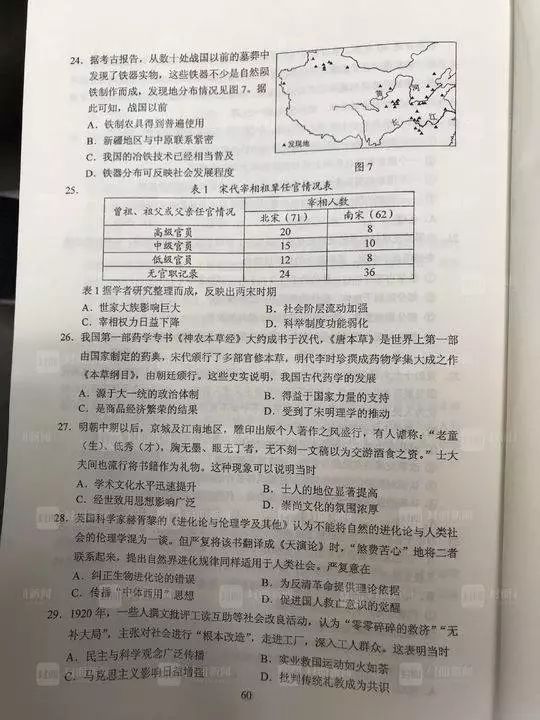 24. 据考古报告，从数十处战国以前的墓葬中
发现了铁器实物，这些铁器不少是自然陨
铁制作而成，发现地分布情况见图7。据
此可知，战国以前
A．铁制农具得到普遍使用
B．新疆地区与中原联系紧密
C．我国的冶铁技术已经相当普及
D．铁器分布可反映社会发展程度
黄
河
长
江
▲发现地
图7
25.
表1 宋代宰相祖辈任官情况表
曾祖、祖父或父亲任官情况
宰相人数
北宋（71）
南宋（62）
高级官员 20 8
中级官员 15 10
低级官员 12 8
无官职记录 24 36
表1据学者研究整理而成，反映出两宋时期
A．世家大族影响巨大 B．社会阶层流动加强
C．宰相权力日益下降 D．科举制度功能弱化
26. 我国第一部药学专书《神农本草经》大约成书于汉代，《唐本草》是世界上第一部
由国家制定的药典，宋代颁行了多部官修本草，明代李时珍撰成药物学集大成之作
《本草纲目》，由朝廷颁行。这些史实说明，我国古代药学的发展
A．源于大一统的政治体制 B．得益于国家力量的支持
C．是商品经济繁荣的结果 D．受到了宋明理学的推动
27. 明朝中期以后，京城及江南地区，雕印出版个人著作之风盛行，有人谑称：“老童
（生）、低秀（才），胸无墨、眼无丁者，无不刻一文稿以为交游酒食之资。”士大
夫间也流行将书籍作为礼物。这种现象可以说明当时
A．学术文化水平迅速提升 B．士人的地位显著提高
C．经世致用思想影响广泛 D．崇尚文化的氛围浓厚
28. 英国科学家赫胥黎的《进化论与伦理学及其他》认为不能将自然的进化论与人类社
会的伦理学混为一谈。但严复将该书翻译成《天演论》时，“煞费苦心”地将二者
联系起来，提出自然界进化规律同样适用于人类社会。严复意在
A．纠正生物进化论的错误 B．为反清革命提供理论依据
C．传播“中体西用”思想 D．促进国人救亡意识的觉醒
29. 1920年，一些人撰文批评工读互助等社会改良活动，认为“零零碎碎的救济”“无
补大局”，主张对社会进行“根本改造”，走进工厂，深入工人群众。这表明当时
A．民主与科学观念广泛传播 B．实业救国运动如火如荼
C．马克思主义影响日益增强 D．批判传统礼教成为共识
60
封面新闻